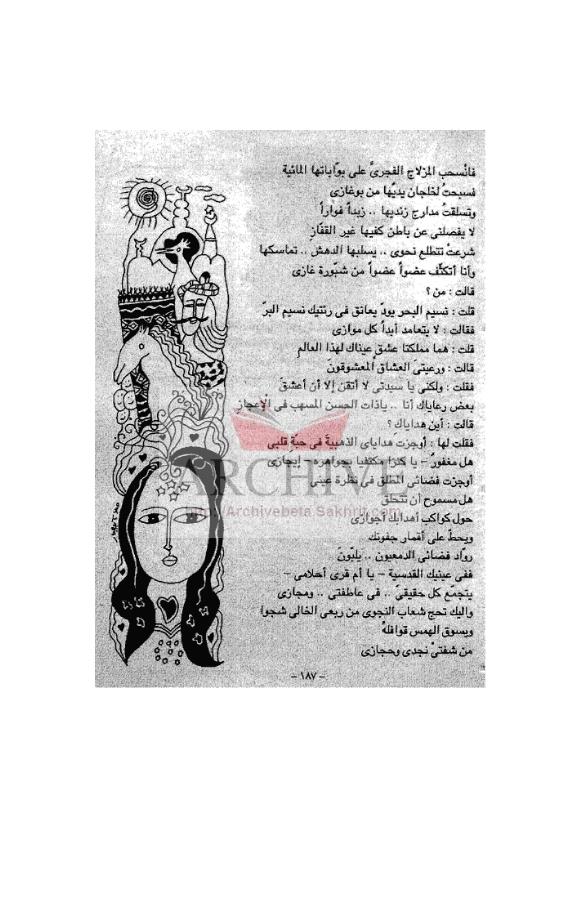 فانْسحب المزلاج الفجرىُّ على بوّاباتها المائية
فسبحتُ لخلجان يديْها من بوغازى
وتسلقتُ مدارج زنديها .. زبداً فواراً
لا يفصلنى عن باطن كفيها غير القفّازِ
شرعتْ تتطلع نحوى .. يسلبها الدهش .. تماسكها
وأنا أتكثّف عضواً عضواً من شبّورة غازى
قالت : من ؟
قلت : نسيم البحر يودّ يعانق فى رئتيك نسيم البرّ
فقالت : لا يتعامد أبداً كل موازى
قلت : هما مملكتا عشقٍ عيناك لهذا العالمِ
قالت : ورعيتى العشاق المعشوقونْ
فقلت : ولكنى يا سيدتى لا أتقن إلا أن أعشقَ
بعض رعاياك أنا .. ياذات الحسن المسهب فى الإعجازِ
قالت : أين هداياك ؟
فقلت لها : أوجزت هداياى الذهبيةَ فى حبّةِ قلبى
هل مغفورٌ – يا كنزا مكتفيا بجواهره – إيجازى
أوجزت فضائى المطلق فى نظرة عينى
هل مسموح أن تتحلق
حول كواكب أهدابك أجوازى
ويحطّ على أقمار جفونك
روّاد فضائى الدمعيون .. يلبّونَ
ففى عينيك القدسية – يا أم قرى أحلامى –
يتجمّع كل حقيقىٍّ .. فى عاطفتى .. ومجازى
واليك تحج شعاب النجوى من ربعى الخالى شجوا
ويسوق الهمس قوافلهُ
من شفتىْ نجدى وحجازى
– ١٨٧ –
ARCHIVE
http://Archivebeta.Sakhrit.com